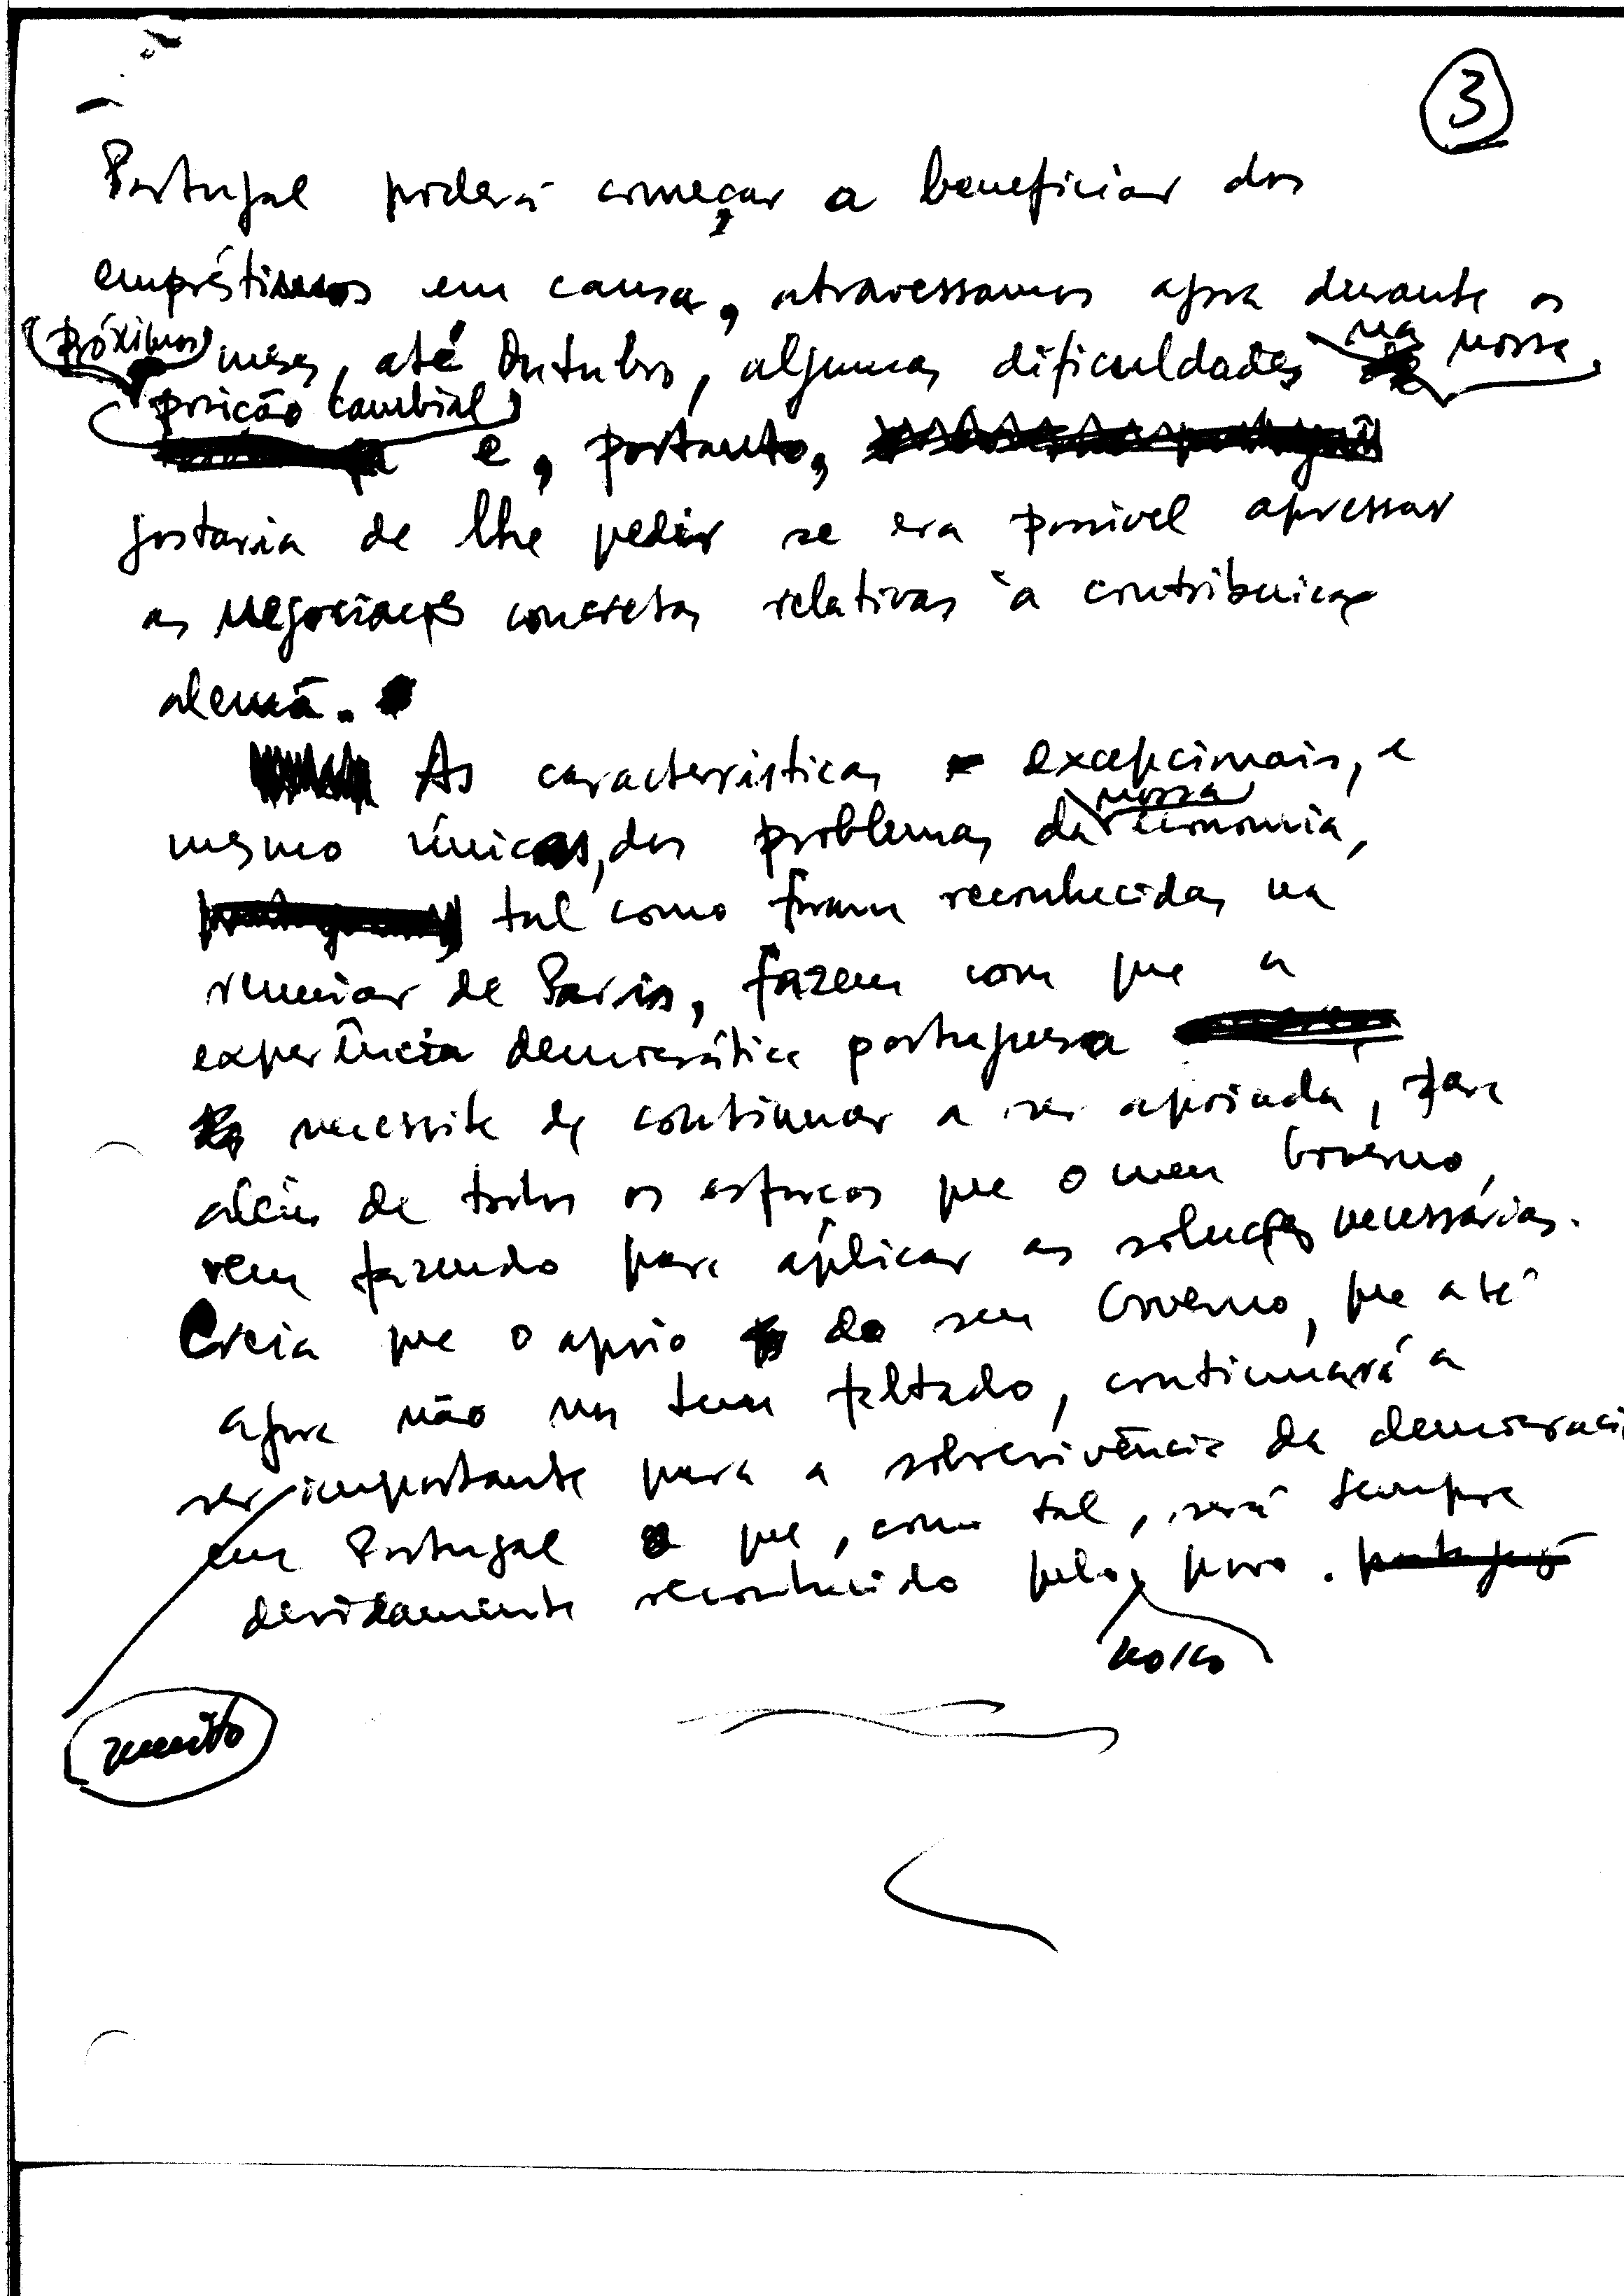 3
Portugal poderá começar a beneficiar dos
empréstimos em causa, atravessamos agora durante os
próximos meses, até Outubro, algumas dificuldades na nossa
posição cambial
e, portanto,
gostaria de lhe pedir se era possível apressar
as negociações concretas relativas à contribuição
alemã.
As características excepcionais, e
mesmo únicas, dos problemas da nossa economia,
tal como foram reconhecidas na
reunião de Paris, fazem com que a
experiência democrática portuguesa
necessite de continuar a ser apoiada, para
além de todos os esforços que o meu Governo,
vem fazendo para aplicar as soluções necessárias.
Creia que o apoio do seu Governo, que até
agora não nos tem faltado, continuará a
ser importante para a sobrevivência da democraci
em Portugal e que, como tal, será sempre
devidamente reconhecido pelo povo. português
nosso
muito